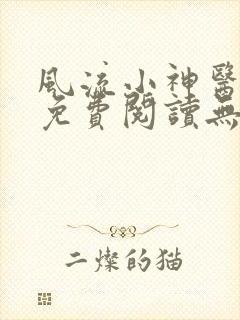 風流小神醫
免費閱讀無
二燦的猫